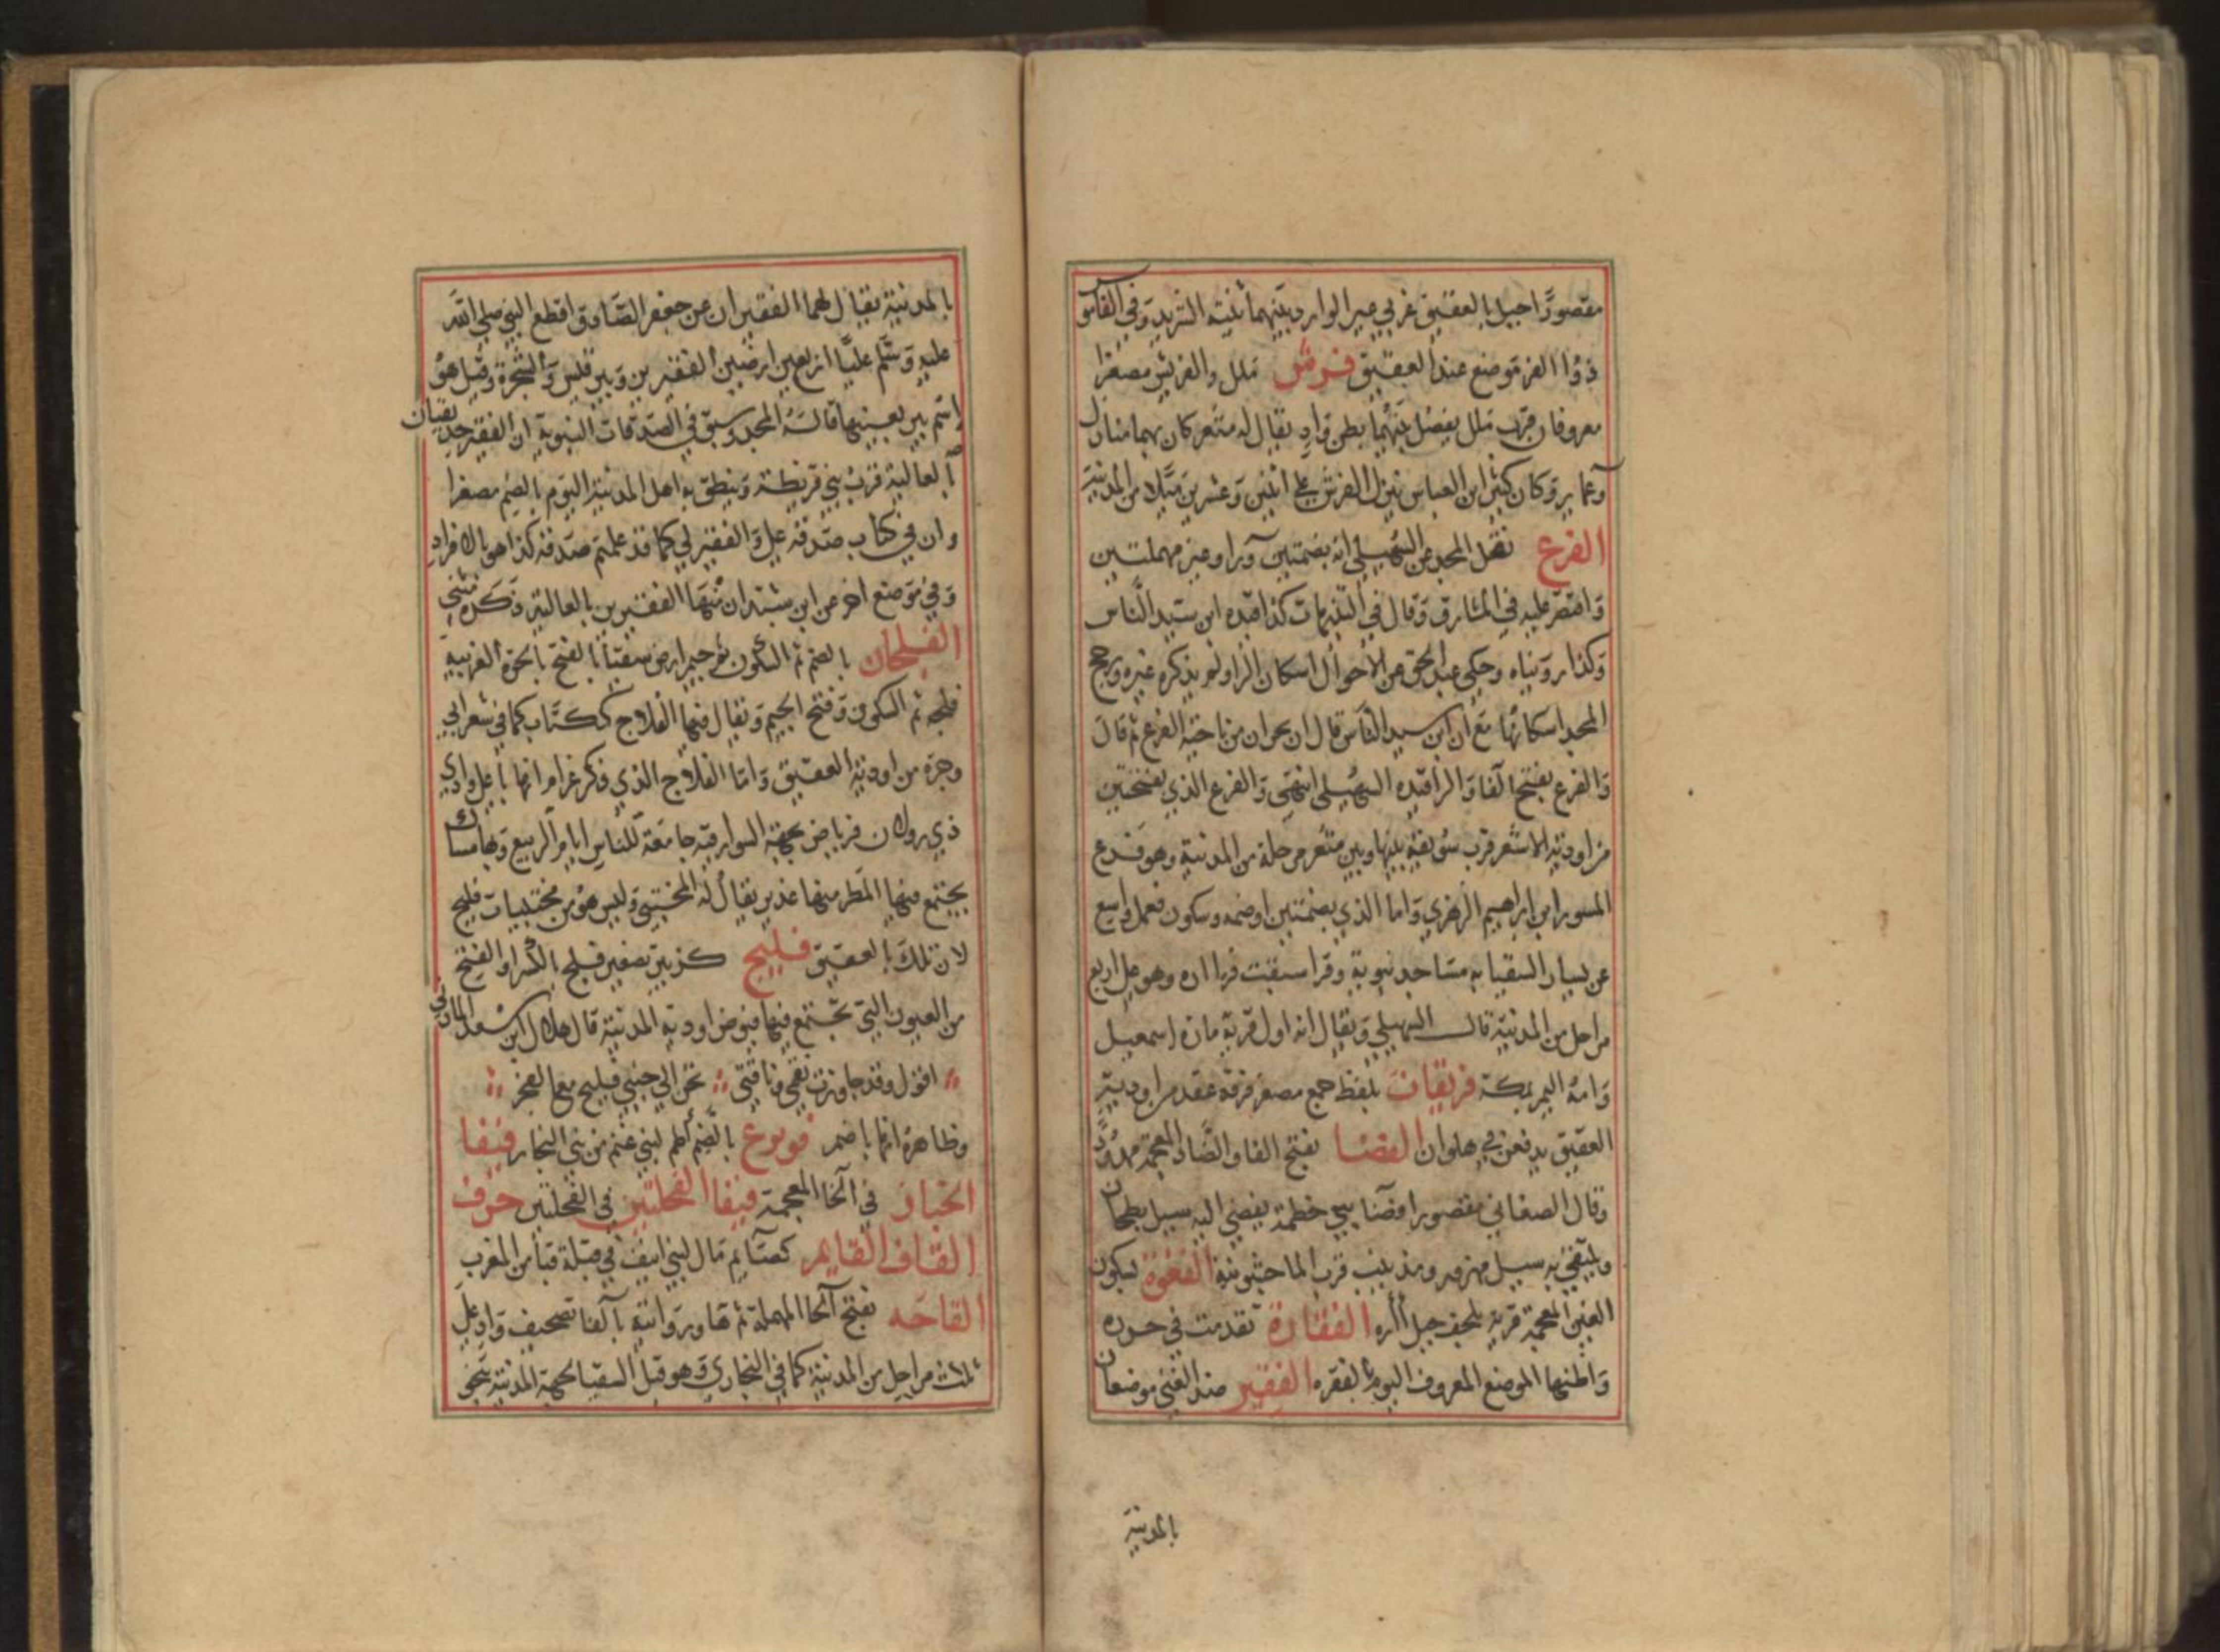 مقصورًا جبل بالعقيق غربي عير الوارد بينهما ثنية الشريد وفي القاموس
ذو الفر موضع عند العقيق فرش ملل والفريش مصغرا
معروفان قرب ملل يفصل بينهما بطن واد يقال له مثعر كان بهما منازل
وعماير وكان كثير ابن العباس ينزل الفرش على اثنين وعشرين ميلا من المدينة
الفرع نقل المجد عن السهيلي انه بضمتين وراء وعين مهملتين
واقتصر عليه في المشارق وقال في التنبيهات كذا قيده ابن سيد الناس
وكذا رويناه وحكى عبد الحق عن الاحوال اسكان الراء ولم يذكره غيره ورجح
المجد اسكانها مع ان ابن سيد الناس قال ان بحران من ناحية الفرع ثم قال
والفرع بفتح الفا والرا قيده السهيلي انتهى والفرع الذي بفتحتين
من اودية الاشعر قرب سويقة بينها وبين مثعر مرحلة من المدينة وهو فرع
المسور ابن ابراهيم الزهري واما الذي بضمتين او ضمه وسكون فعمل واسع
عن يسار السقيا به مساجد نبوية وقرا سبقت فيارا اره وهو على اربع
مراحل من المدينة قال السهيلي ويقال انه اول قرية مارة اسمعيل
وامه التمر بمكة فريقات بلفظ جمع مصغر فرقة عقد من اودية
العقيق يدفعن في هلوان الفضا بفتح الفا والضاد المعجمة مهدود
وقال الصغاني مقصورا فضا بني خطمة يفضي اليه سيل بطحان
ويلتقي به سيل مهزور ومذينب قرب الماجشونية الفغوة بسكون
الغين المعجمة قرية بلحف جبل اره الفقارة تقدمت في حوره
واظنها الموضع المعروف اليوم بالفقره الفقير ضد الغني موضعان
بالمدينة
بالمدينة يقال لهما الفقيران عن جعفر الصادق اقطع النبي صلى الله
عليه وسلم عليًا اربعين ارضين الفقيرين وبير قيس والشجرة وقيل هو
اسم بير بعينها قاله المجد وسبق في الصدقات النبوية ان الفقير حديقتان
بالعالية قرب بني قريظة وينطق به اهل المدينة اليوم بالضم مصغرا
وان في كتاب صدقة علي والفقير لي كما قد علمتم صدقة كذا هو بالافراد
وفي موضع اخر عن ابن شبة ان منها الفقيرين بالعالية وذكره مثنى
الفلجان بالضم ثم السكون ثم جيم ارض سقيا بالفتح بالحرة الغربية
فلجه ثم السكون وفتح الجيم ويقال فيها الفلاج ككتاب كما في شعر ابي
وجزه من اودية العقيق واما الفلاج الذي ذكر غرام انها باعلى وادي
ذي رولان فرياض بجهة السوارقية جامعة للناس ايام الربيع وبها مساك
يجتمع فيها المطر منها غدير يقال له المختبي وليس هو من مختبيات فليج
لان تلك بالعقيق فليج كزبير تصغير فلج بالكسر او الفتح
من العيون التي تجتمع فيها فيوض اودية المدينة قال هلال ابن سعد المازني
اقول وقد جاوزت نقمى وناقتي تحن الى جنبي فليج مع الفجر
وظاهرة انها باضم فويرع بالضم اطم لبني غنم من بني النجار فيفا
الخبار في الخا المعجمة فيفا الفحلتين في الفحلتين حرف
القاف القايم كصايم مال لبني انيف في قبلة قبا من المغرب
القاحه بفتح الحا المهملة ثم ها وروايتة بالفا تصحيف واد على
ثلاث مراحل من المدينة كما في البخاري وهو قبل السقيا لجهة المدينة بنحو